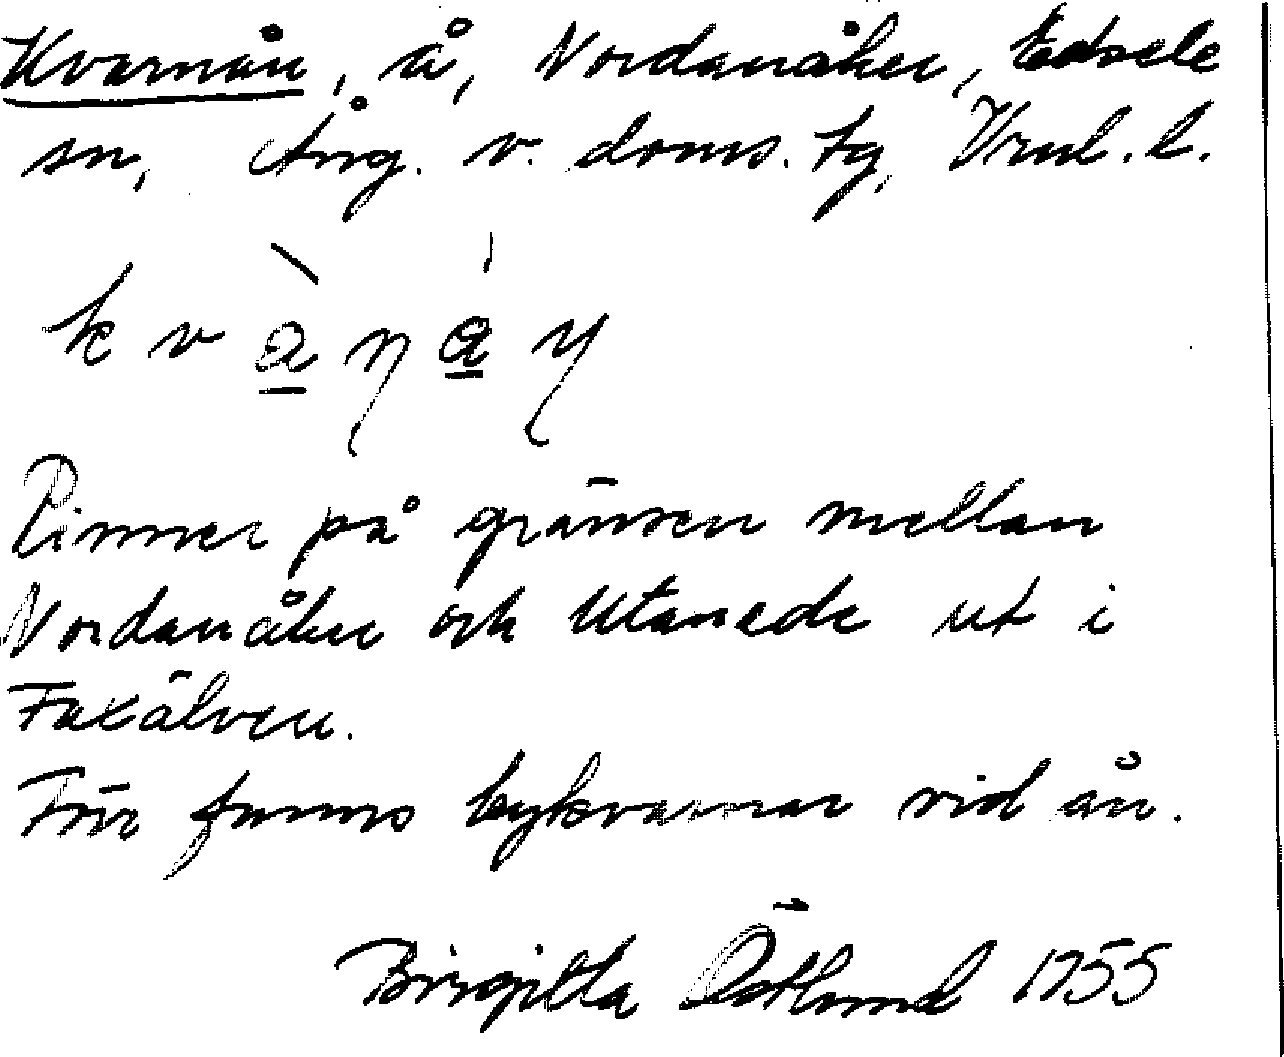 Kvarnån, å, Nordanåker, Edsele
sn, Ång. v. doms. tg,
k v à̲ ŋ á̲ ŋ
Rinner på gränsen mellan
Nordanåker och Utanede ut i
Faxälven.
Förr fanns bykvarnar vid ån.
Birgitta Östlund 1955